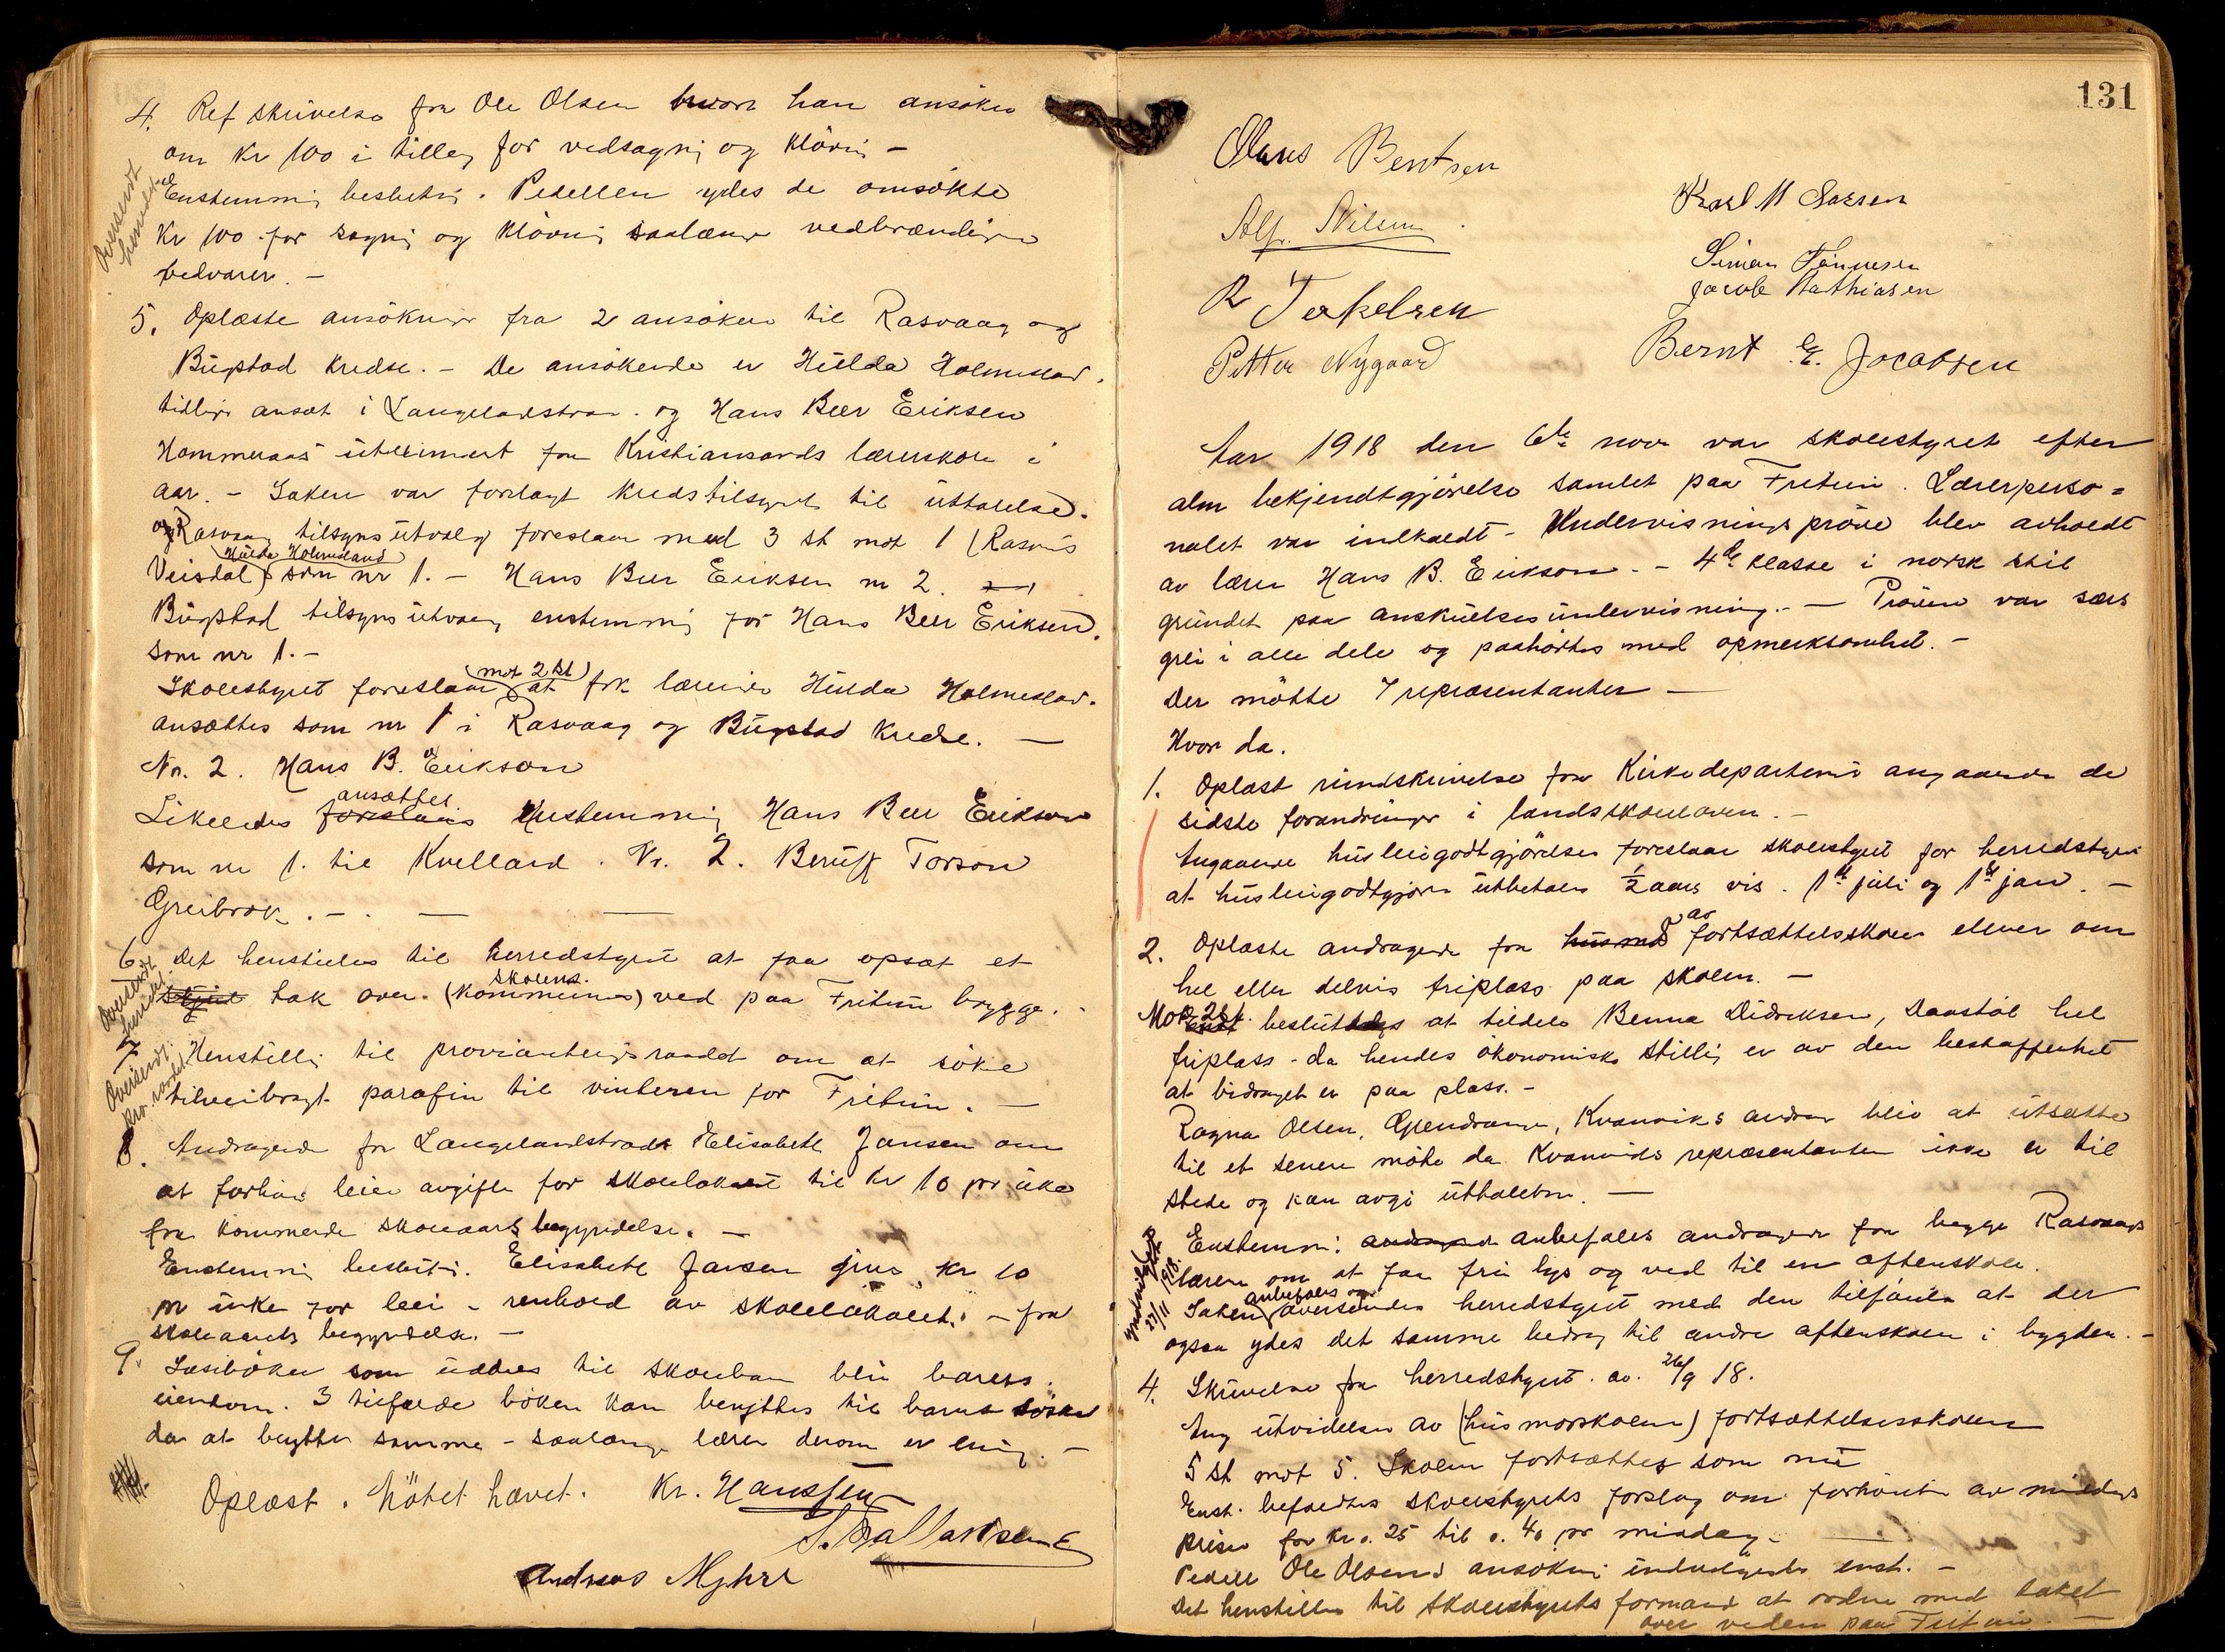 4. Ref skrivelse fra Ole Olsen hvori han ansöker
om Kr 100 i tillæg for vedsagni og klövni –
Oversendt
herredst.
Enstemmi beslutni. Pedellen ydes de omsökte
Kr 100 for sagni og klövni saalænge vedbrændingen
vedvarer. –
5. Oplæste ansökninr fra 2 ansökere til Rasvaag og
Bugstad kredse. – De ansökende er Hulda Holmesland.
tidliger ansat i Langelandstran. og Hans Beer Eriksen
Hommeraas utexaminert fra Kristiansands lærerskole i
aar. – Saken var forelagt kredstilsynet til uttalelse.
og Rasvaag tilsynsutvalg foreslaar med 3 st mot 1 (Rasmus
Hulda Holmesland
Veisdal) som nr 1. – Hans Beer Eriksen nr 2.
Bugstad tilsynsutvalg enstemmi for Hans Beer Eriksen.
som nr 1. –
(mot 2 st)
Skolestyret foreslaar at frk lærerinde Hulda Holmesland.
ansættes som nr 1 i Rasvaag og Bugstad kredse. –
No. 2. Hans B. Erikson
ansættes.
Likeledes foreslaaes Enstemmi Hans Beer Erikson
som nr 1. til Kvelland. Nr. 2. Beruff Torson
Greibrok. – . – –
6 Det henstilles til herredstyret at faa opsat et
Oversendt
herredst.
skolens.
skjul tak over (kommunens) ved paa Fritun brygge. .
7 Henstilli til provianteringsraadet om at söke
Oversendt.
Pro. raadet
tilveibragt parafin til vinteren for Fritun. –
8. Andragende fra Langelandstrands Elisabeth Jansen om
at forhöie leieavgiften for skolelokalet til kr 10 pr uke
fra kommende skoleaars begyndelse. –
Enstemmi beslutni. Elisabeth Jansen gives kr 10
pr uke for leie – renhold av skolelokalet. – fra
skoleaarets begyndelse. –
9. Læsebøker som uddeles til skolebarn blir barets
eiendom. I tilfælde böker kan benyttes til barnets søsken
da at benytte samme – saalænge lærer derom er enig. –
Oplæst. Mötet hævet. Kr. Hanssen
S. Salvesen
Andreas Myhre
131
Olaus Bentsen
Karl M Larsen
Alf. Nilsen.
Simon Tönnesen
Jacob Mathiasen
R Terkelsen
Petter Nygaard
Bernt E. Jocabsen
Aar 1918 den 6te novr var skolestyret efter
alm bekjendtgjörelse samlet paa Fritun. Lærerperso=
nalet var indkaldt – Undervisningspröve blev avholdt
av lærer Hans B. Erikson. – 4de klasse i norsk stil
grundet paa anskuelsesundervisning. – Pröven var særs
grei i alle dele og paahörtes med opmerksomhet. –
Der mötte 7 repræsentanter –
Hvor da.
1. Oplæst rundskrivelse fra Kirkedepartemt angaaende de
sidste forandringer i landsskoleloven. –
Angaaende husleiegodtgjörelser foreslaar skolestyret for herredstyret
at husleiegodtgjörn utbetales ½ aars vis. 1ste juli og 1ste jan. –
av
2. Oplæste andragende fra husmo fortsættelsesskolens elever om
hel eller delvis friplass paa skolen. –
Mot 2 st. Enst besluttedes at tildele Benna Didreksen, Daastöl hel
friplass – da hendes økonomiske stilli er av den beskaffenhet
at bidraget er paa plass. –
Ragna Olsen, Ependrange, Kvanviks andrag blev at utsætte
til et senere möte da Kvanviks repræsentanter ikke er til
stede og kan avgi uttalelsen. –
Enstemmi andragende anbefales andragende fra begge Rasvaags
27/11 1918.
lærere om at faa fri lys og ved til en aftenskole.
anbefales og
Saken oversendes herredstyret med den tilföielse at der
ogsaa ydes det samme bidrag til andre aftenskoler i bygden. –
4. Skrivelse fra herredstyret av 26/9 18.
Ang utvidelse av (husmorskolen) fortsættelsesskolen
5 st mot 5. Skolen fortsættes som nu
Enst. befaledes skolestyrets forslag om forhöielse av middags
prisen fra kr 0.25 til 0.40 pr middag. –
Pedell Ole Olsens ansökni indvilgedes enst. –
Det henstilles til skolestyrets formand at ordne med taket
over veden paa Fritun. –